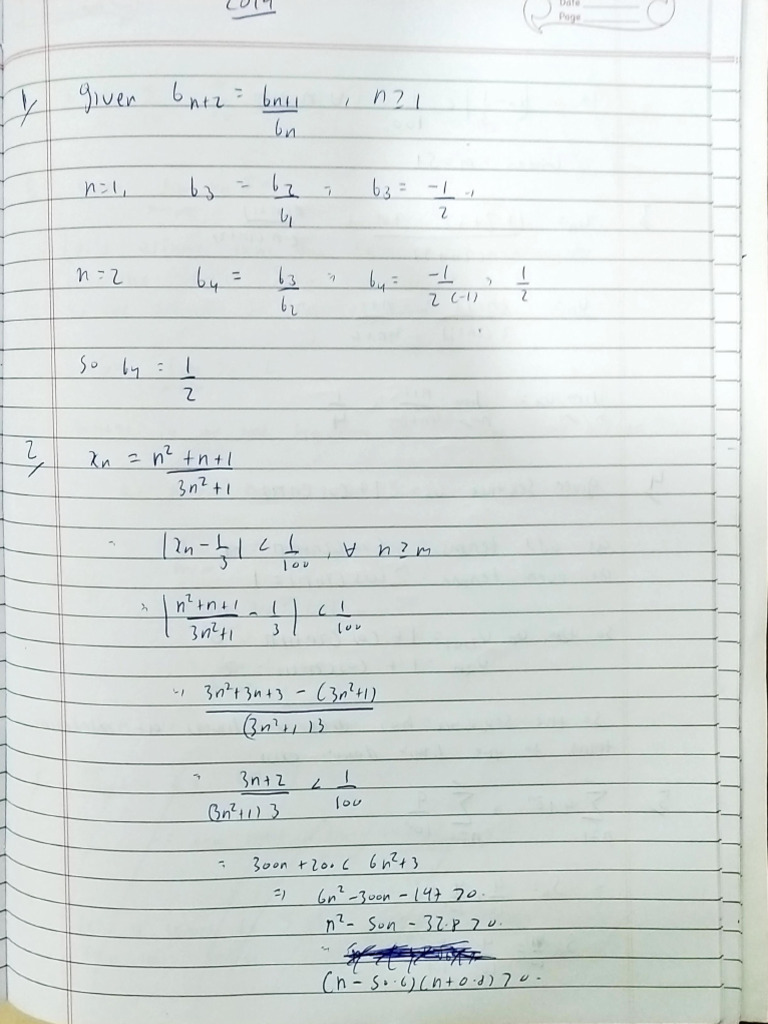 2019
Date
Page
1/ given b_{n+2} = b_{n+1}/b_n , n ≥ 1
n=1, b_3 = b_2/b_1 , b_3 = -1/2
n=2 b_4 = b_3/b_2 , b_4 = -1/2(-1) , 1/2
so b_4 = 1/2
2/ x_n = n² + n + 1 / 3n² + 1
|x_n - 1/3| < 1/100 , ∀ n ≥ m
|n²+n+1 / 3n²+1 - 1/3| < 1/100
3n²+3n+3 - (3n²+1) / (3n²+1)3
= 3n+2 / (3n²+1)3 < 1/100
= 300n + 200 < 6n²+3
=> 6n² - 300n - 197 > 0.
n² - 50n - 32.8 > 0.
(n - 50.6)(n + 0.8) > 0.